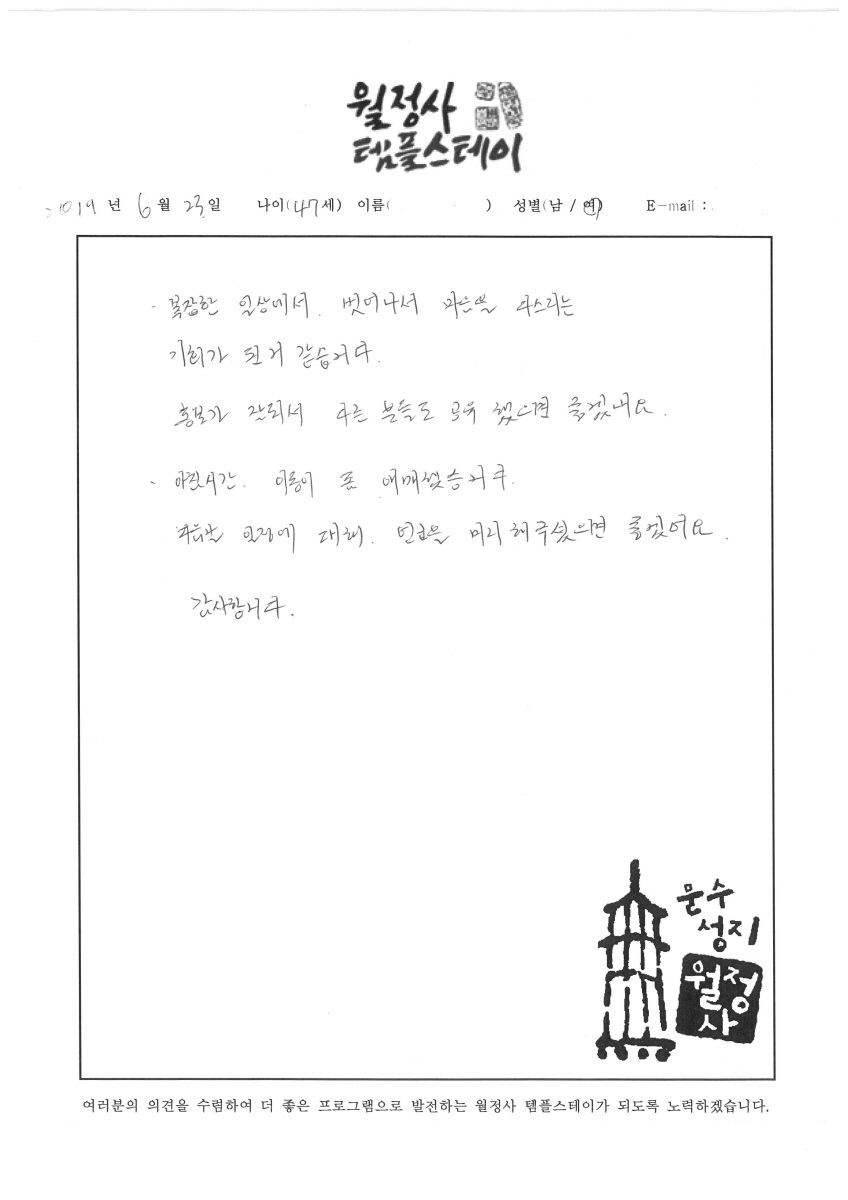 월정사
템플스테이
2019 년 6 월 23 일 나이(47세) 이름( ) 성별(남 / 여) E-mail :
- 복잡한 일상에서. 벗어나서 마음을 다스리는
기회가 된거 같습니다.
홍보가 잘되서 다른 분들도 공유 했으면 좋겠네요.
- 이동이 좀 애매했습니다.
일정에 대해. 언급을 미리 해주셨으면 좋겠어요.
감사합니다.
문수
성지
월정
사
여러분의 의견을 수렴하여 더 좋은 프로그램으로 발전하는 월정사 템플스테이가 되도록 노력하겠습니다.